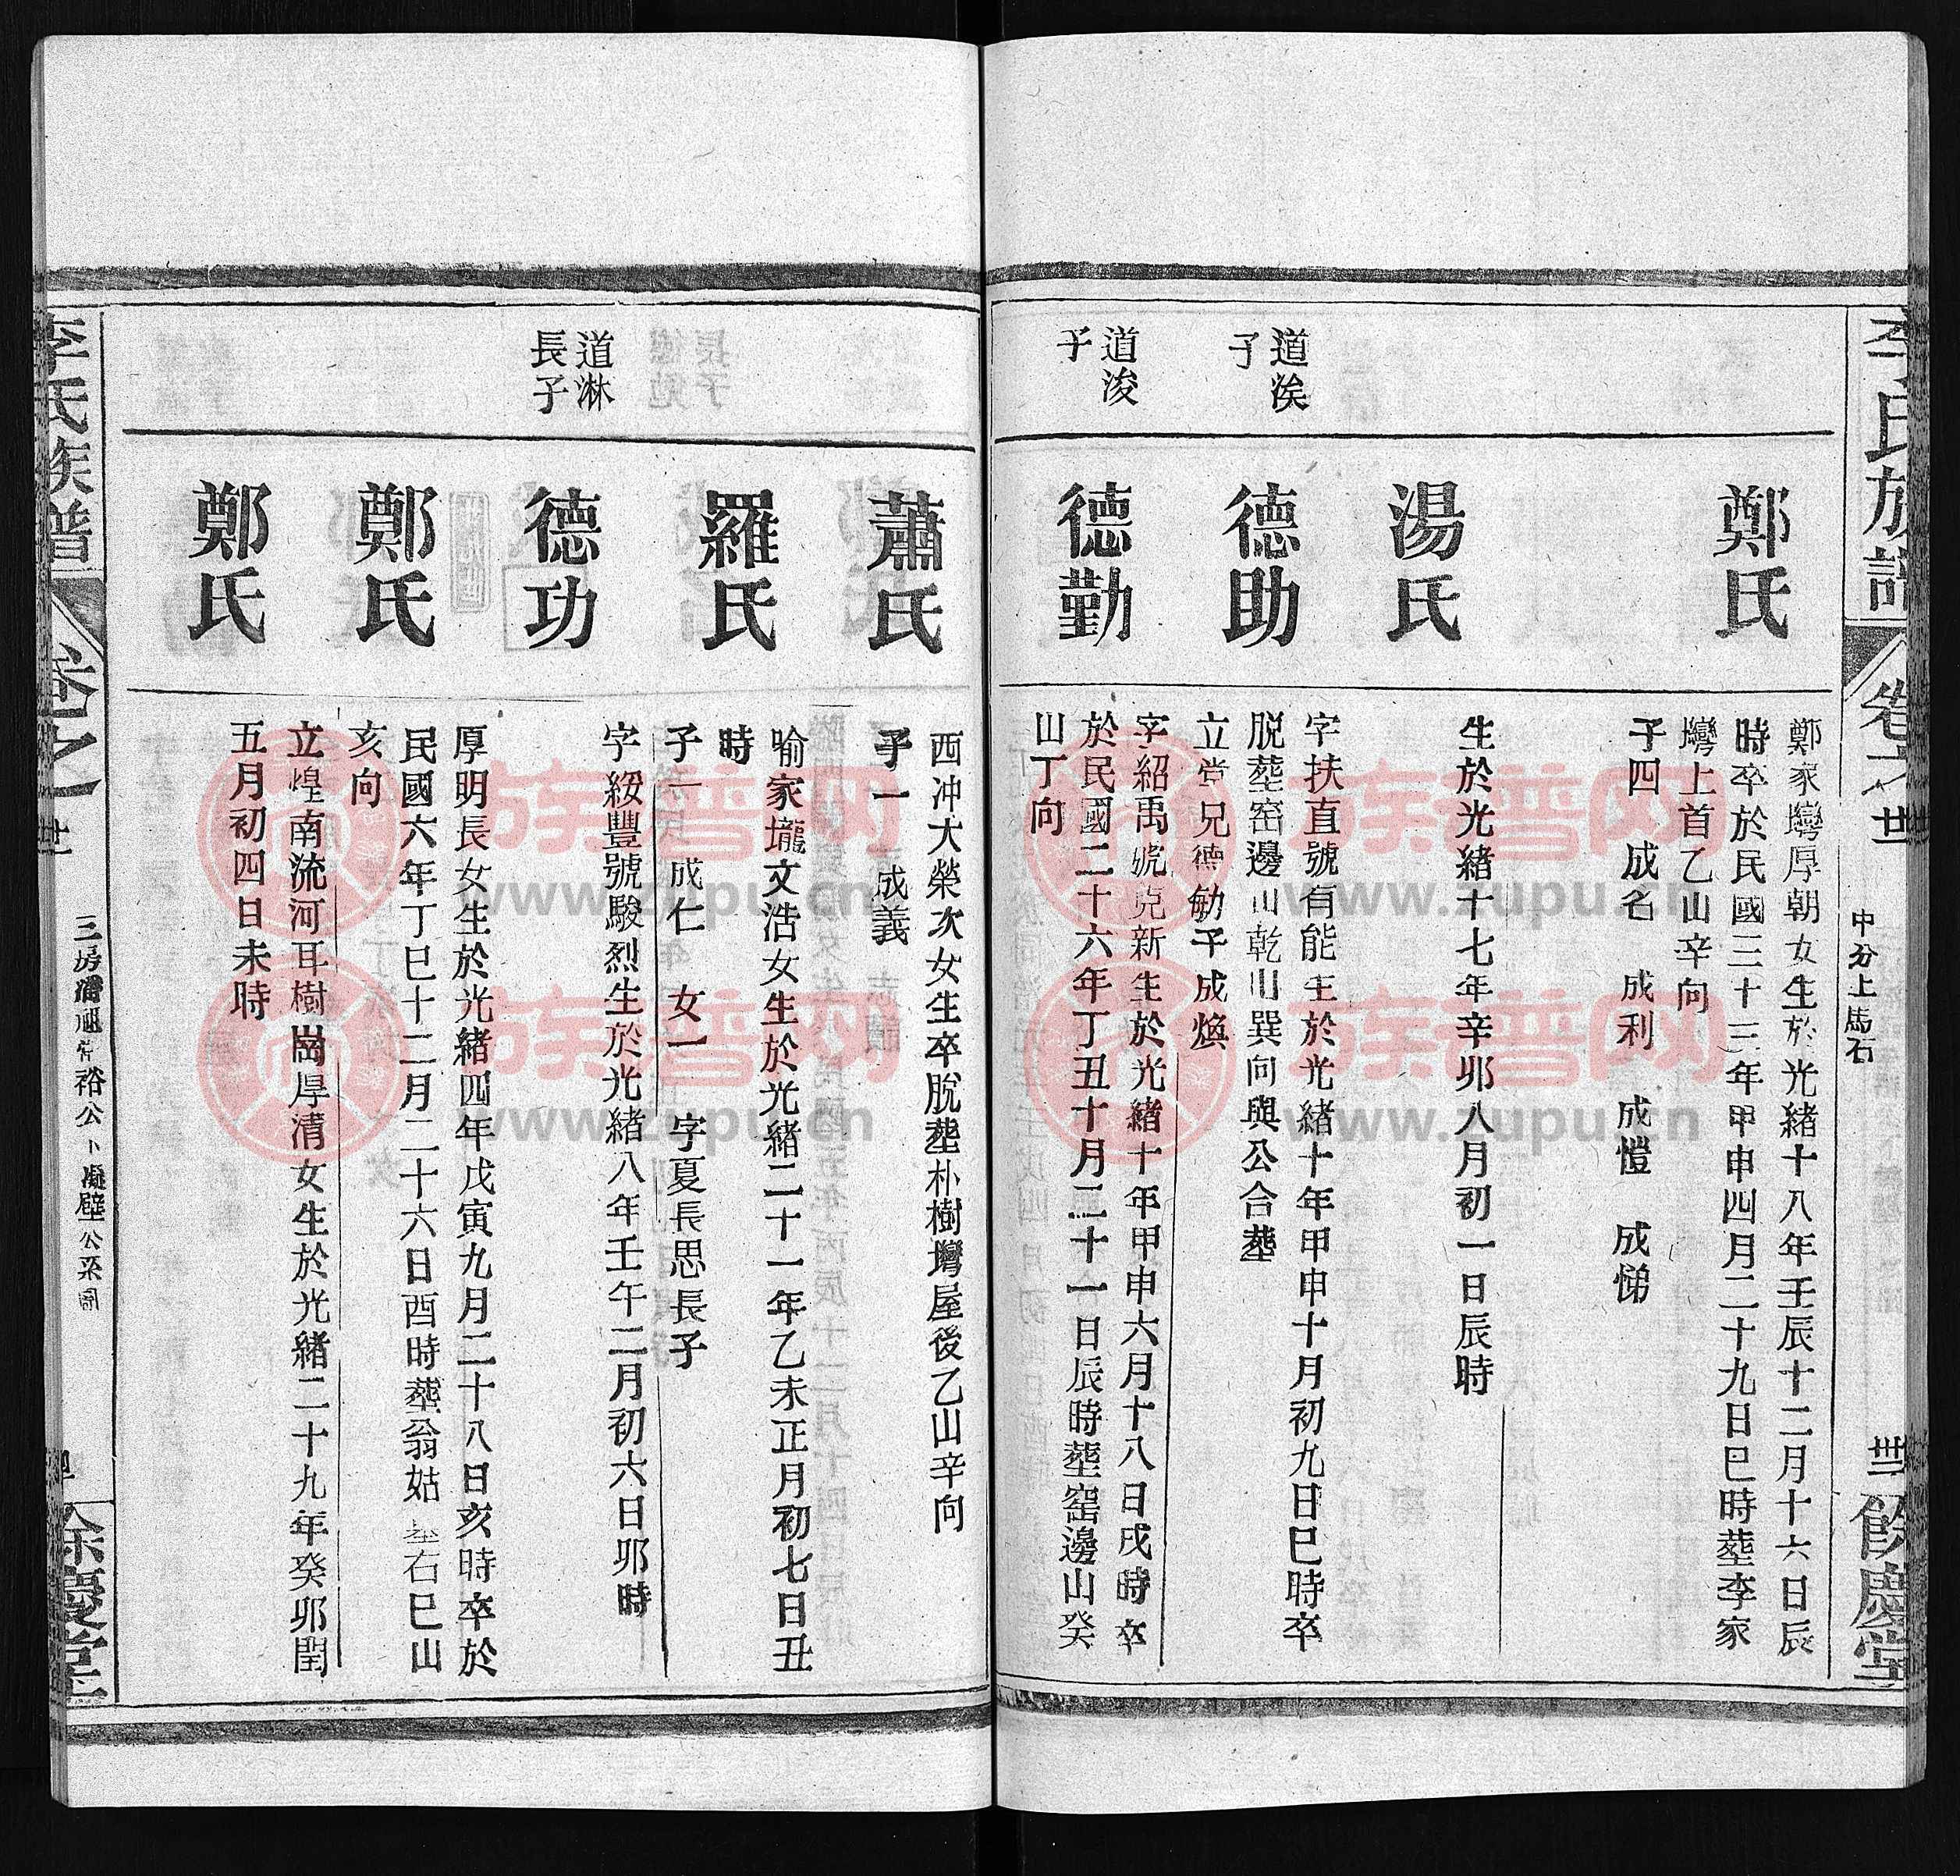 李氏族譜
卷之
世
中分上馬石
餘慶堂
鄭氏
鄭家壪厚朝女生於光緒十八年壬辰十二月十六日辰
時卒於民國三十三年甲申四月二十九日巳時塟李家
壪上首乙山辛向
子四 成名 成利 成愷 成悌
湯氏
生於光緒十七年辛卯八月初一日辰時
道涘
子
德助
字扶直號有能生於光緒十年甲申十月初九日巳時卒
脱塟窑邊山乾山巽向與公合塟
立堂兄德勉子成煥
道浚
子
德勤
字紹禹號克新生於光緒十年甲申六月十八日戌時卒
於民國二十六年丁丑十月二十一日辰時塟窑邊山癸
山丁向
蕭氏
西冲大榮次女生卒脫塟朴樹壪屋後乙山辛向
子一 成義
羅氏
喻家壠文浩女生於光緒二十一年乙未正月初七日丑
時
子一 成仁 女一 字夏長思長子
道淋
長子
德功
字綏豐號駿烈生於光緒八年壬午二月初六日卯時
鄭氏
厚明長女生於光緒四年戊寅九月二十八日亥時卒於
民國六年丁巳十二月二十六日酉時塟翁姑 右巳山
亥向
鄭氏
立煌南流河耳樹崗厚清女生於光緒二十九年癸卯閏
五月初四日未時
李氏族譜
卷之
世
裕公卜凝壁公
餘慶堂
族譜网
www.zupu.cn
族譜网
www.zupu.cn
族譜网
www.zupu.cn
族譜网
www.zupu.cn